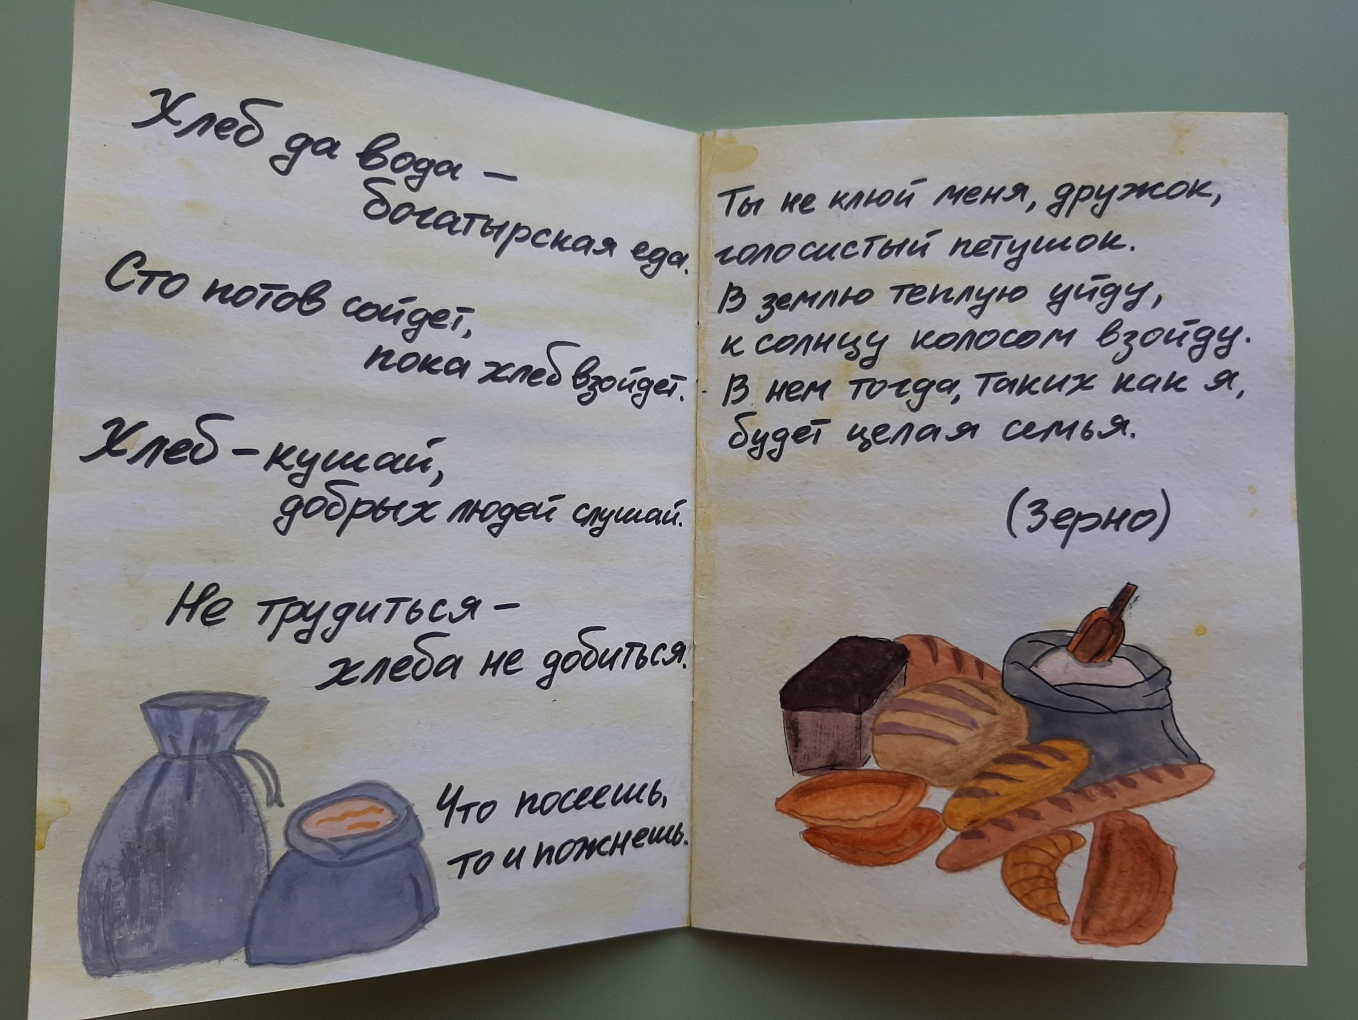 Хлеб да вода –
богатырская еда.
Сто потов сойдет,
пока хлеб взойдет.
Хлеб – кушай,
добрых людей слушай.
Не трудиться –
хлеба не добиться.
Что посеешь,
то и пожнешь.
Ты не клюй меня, дружок,
голосистый петушок.
В землю теплую уйду,
к солнцу колосом взойду.
В нем тогда, таких как я,
будет целая семья.
(Зерно)